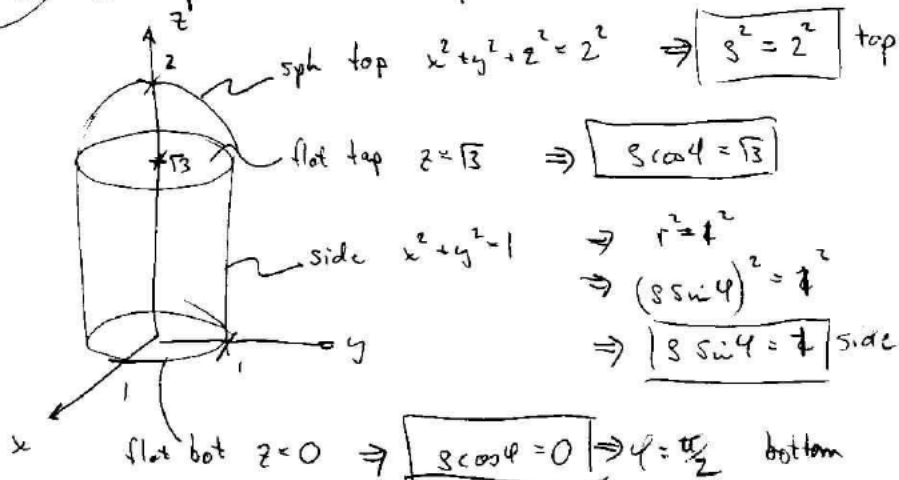 z
2
sph top x² + y² + z² = 2² ⇒ ρ² = 2² top
√3
flat top z = √3 ⇒ ρ cos φ = √3
side x² + y² = 1 ⇒ r² = 1²
⇒ (ρ sin φ)² = 1²
⇒ ρ sin φ = 1 side
y
1 1
x
flat bot z = 0 ⇒ ρ cos φ = 0 ⇒ φ = π/2 bottom